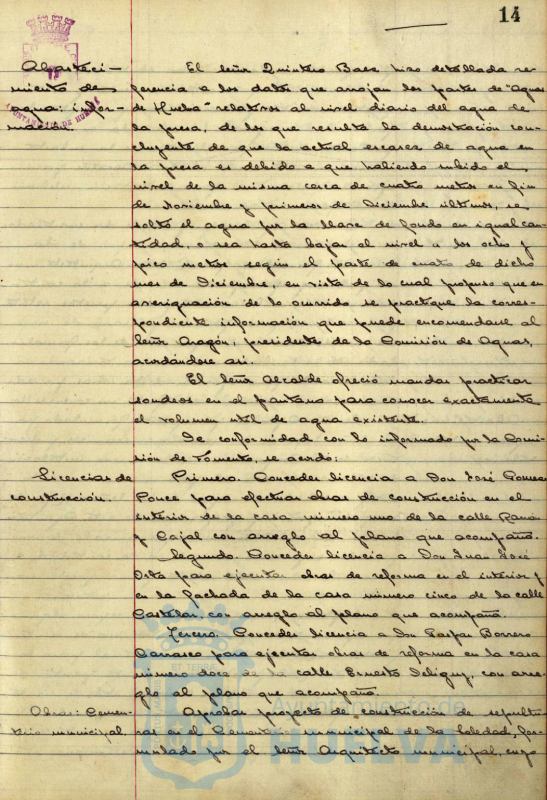 14
Abasteci-
miento de
agua: infor-
mación.
El señor Quintero Baez hizo detallada re-
ferencia a los datos que arrojan los partes de "Aguas
de Huelva" relativos al nivel diario del agua de
la presa, de los que resulta la demostración con-
cluyente de que la actual escasez de agua en
la presa es debido a que habiendo subido el
nivel de la misma cerca de cuatro metros en fin
de Noviembre y primeros de Diciembre últimos, se
soltó el agua por la llave de fondo en igual can-
tidad, o sea hasta bajar el nivel a los ocho y
pico metros según el parte de cuatro de dicho
mes de Diciembre, en vista de lo cual propuso que en
averiguación de lo ocurrido se practique la corres-
pondiente información que puede encomendarse al
señor Aragón, presidente de la Comisión de Aguas,
acordándose así.
El señor Alcalde ofreció mandar practicar
sondeos en el pantano para conocer exactamente
el volumen útil de agua existente.
De conformidad con lo informado por la Comi-
sión de Fomento, se acordó:
Licencias de
construcción.
Primero. Conceder licencia a Don José Gomez
Ponce para efectuar obras de construcción en el
interior de la casa número uno de la calle Ramón
y Cajal con arreglo al plano que acompaña.
Segundo. Conceder licencia a Don Juan José
Orta para ejecutar obras de reforma en el interior y
en la fachada de la casa número cinco de la calle
Castelar, con arreglo al plano que acompaña.
Tercero. Conceder licencia a Don Gaspar Borrero
Carrasco para ejecutar obras de reforma en la casa
número doce de la calle Ernesto Deligny, con arre-
glo al plano que acompaña.
Obras: Cemen-
terio municipal.
Aprobar proyecto de construcción de sepultu-
ras en el Cementerio municipal de la Soledad, for-
mulado por el señor Arquitecto municipal, cuyo
AYUNTAMIENTO DE HUELVA
Ayuntamiento de
HUELVA